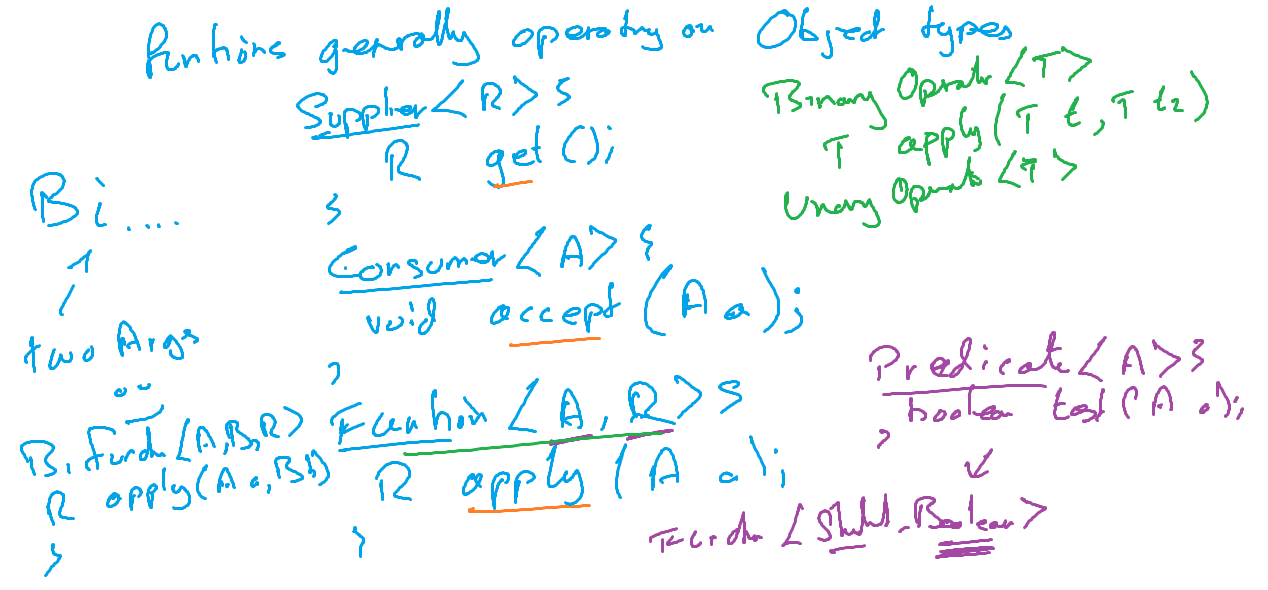 Funtions generally operatng on Object types
Supplier<R> {
R get();
}
Consumer<A> {
void accept(A a);
}
Function<A, R> {
R apply(A a);
}
Bi....
two Args
BiFunctn<A,B,R>
R apply(A a, B b)
}
Binary Operatr<T>
T apply(T t, T t2)
Unary Operatr<T>
Predicate<A> {
boolean test(A a);
}
Functn<Student, Boolean>